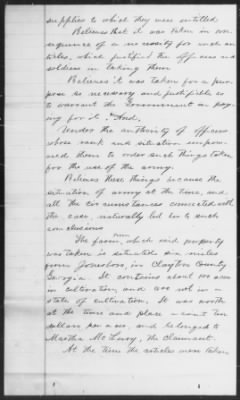 supplies to which they were entitled
Believes that it was taken in con-
sequence of a necessity for such ar-
ticles, which justified the officers and
soldiers in taking them.
Believes it was taken for a pur-
pose so necessary and justifiable as
to warrant the Government in pay-
ing for it. And,
Under the authority of officers
whose rank and situation empow-
ered them to order such things taken
for the use of the army.
Believes these things because the
situation of army at the time, and
all the circumstances connected with
the case, naturally led her to such
conclusions
The farm, from which said property
was taken is situated six miles
from Jonesboro, in Clayton County
Georgia. It contains about 100 acres
in cultivation, and are not in a
state of cultivation. It was worth
at the time and place - about ten
dollars per acre, and belonged to
Martha McLeroy, the claimant.
At the time the articles were taken